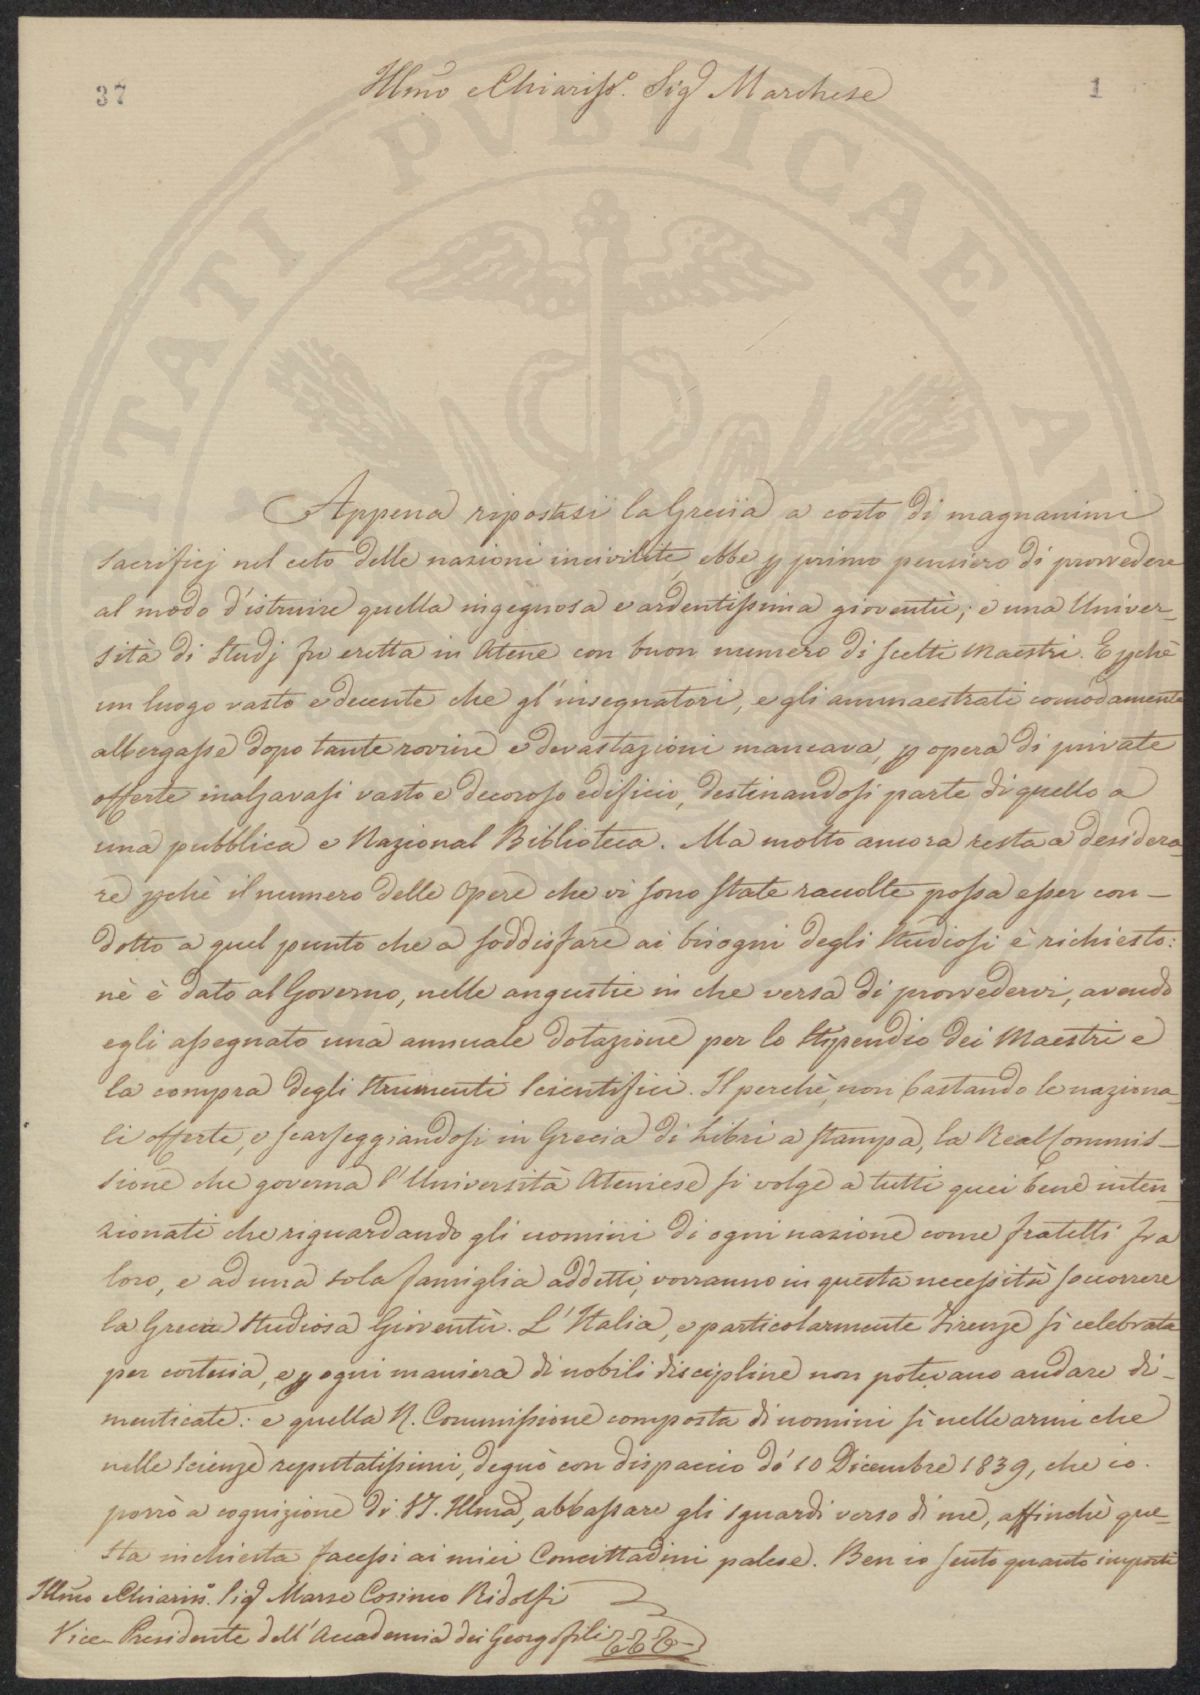 37
1
Illmo e Chiariss.o Sig.r Marchese
Appena ripostasi la Grecia a costo di magnanimi
sacrificj nel ceto delle nazioni incivilite ebbe p primo pensiero di provvedere
al modo d'istruire quella ingegnosa e ardentissima gioventù; e una Univer-
sità di Studj fu eretta in Atene con buon numero di scelti Maestri. E pchè
un luogo vasto e decente che gl'insegnatori, e gli ammaestrati comodamente
albergasse dopo tante rovine e devastazioni mancava, p opera di private
offerte inalzavasi vasto e decoroso edificio, destinandosi parte di quello a
una pubblica e Nazional Biblioteca. Ma molto ancora resta a desidera-
re pchè il numero delle Opere che vi sono state raccolte possa esser con-
dotto a quel punto che a soddisfare ai bisogni degli Studiosi è richiesto:
nè è dato al Governo, nelle angustie in che versa di provvedervi, avendo
egli assegnato una annuale dotazione per lo Stipendio dei Maestri e
la compra degli Strumenti Scientifici. Il perchè, non bastando le naziona-
li offerte, e scarseggiandosi in Grecia di Libri a Stampa, la Real Commis-
sione che governa l'Università Ateniese si volge a tutti quei bene inten-
zionati che riguardando gli uomini di ogni nazione come fratelli fra
loro, e ad una sola famiglia addetti, vorranno in questa necessità soccorrere
la Greca Studiosa Gioventù. L'Italia, e particolarmente Firenze sì celebrata
per cortesia, e p ogni maniera di nobili discipline non potevano andare di-
menticate: e quella R. Commissione composta di uomini sì nelle armi che
nelle Scienze reputatissimi, degnò con dispaccio de' 10 Dicembre 1839, che io
porrò a cognizione di V.S. Illma, abbassare gli sguardi verso di me, affinchè que-
sta inchiesta facessi ai miei Concittadini palese. Ben io sento quanto importi
Illmo e Chiariss.o Sig.r Marse Cosimo Ridolfi
Vice-Presidente dell'Accademia dei Georgofili